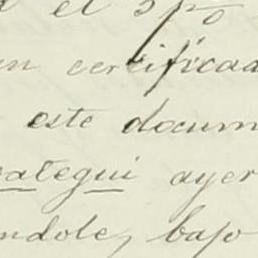 el spo
en certificad
este docum
ategui ayer
ndole, bajo